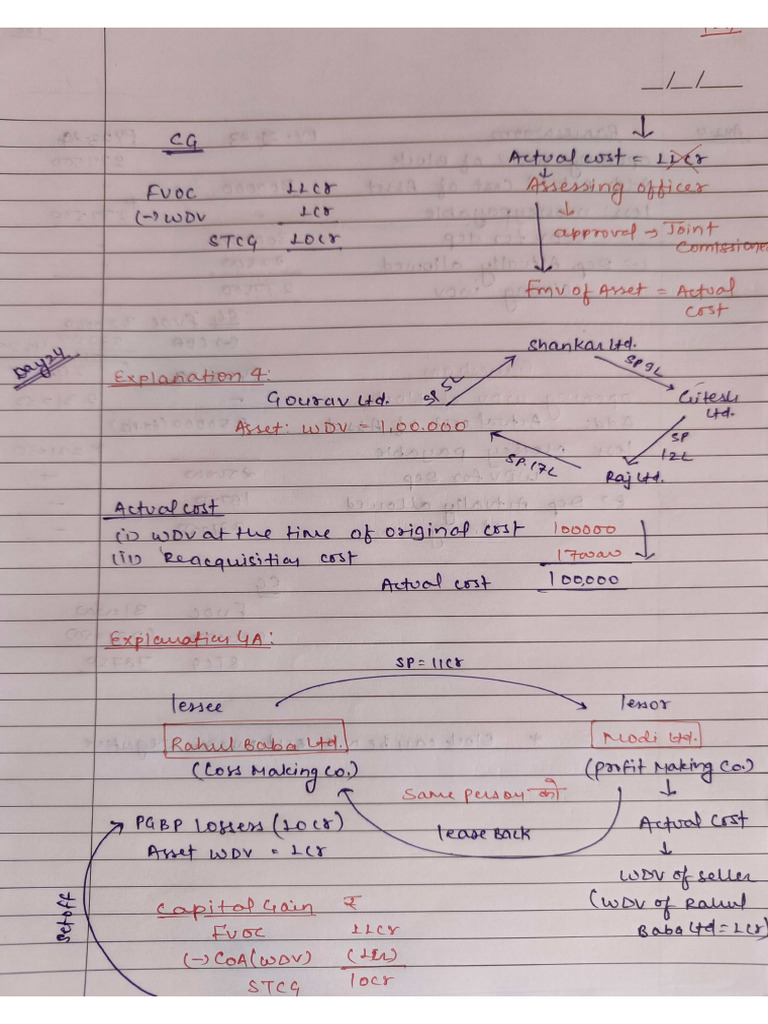 _/_/___
CG
FVOC 11cr
(-) WDV 1cr
STCG 10cr
Actual cost = 11cr
Assessing officer
approval → Joint
Comissioner
Fmv of Asset = Actual
cost
Day 24
Explanation 4:
Shankar Ltd.
SP 5L
SP 9L
Gourav Ltd.
Gitesh
Ltd.
Asset: WDV = 1,00,000
SP
12L
SP. 17L
Raj Ltd.
Actual cost
(i) WDV at the time of original cost 100000
(ii) Reacquisition cost 1700000
Actual cost 100,000
Explanation 4A:
SP = 11cr
lessee
lessor
Rahul Baba Ltd.
Modi Ltd.
(Loss Making Co.)
(Profit Making Co.)
Same person को
lease Back
PGBP Lossers (10cr)
Asset WDV = 1cr
Actual Cost
WDV of seller
(WDV of Rahul
Baba Ltd = 1cr)
Set off
Capital Gain ₹
FVOC 11cr
(-) COA (WDV) (1cr)
STCG 10cr